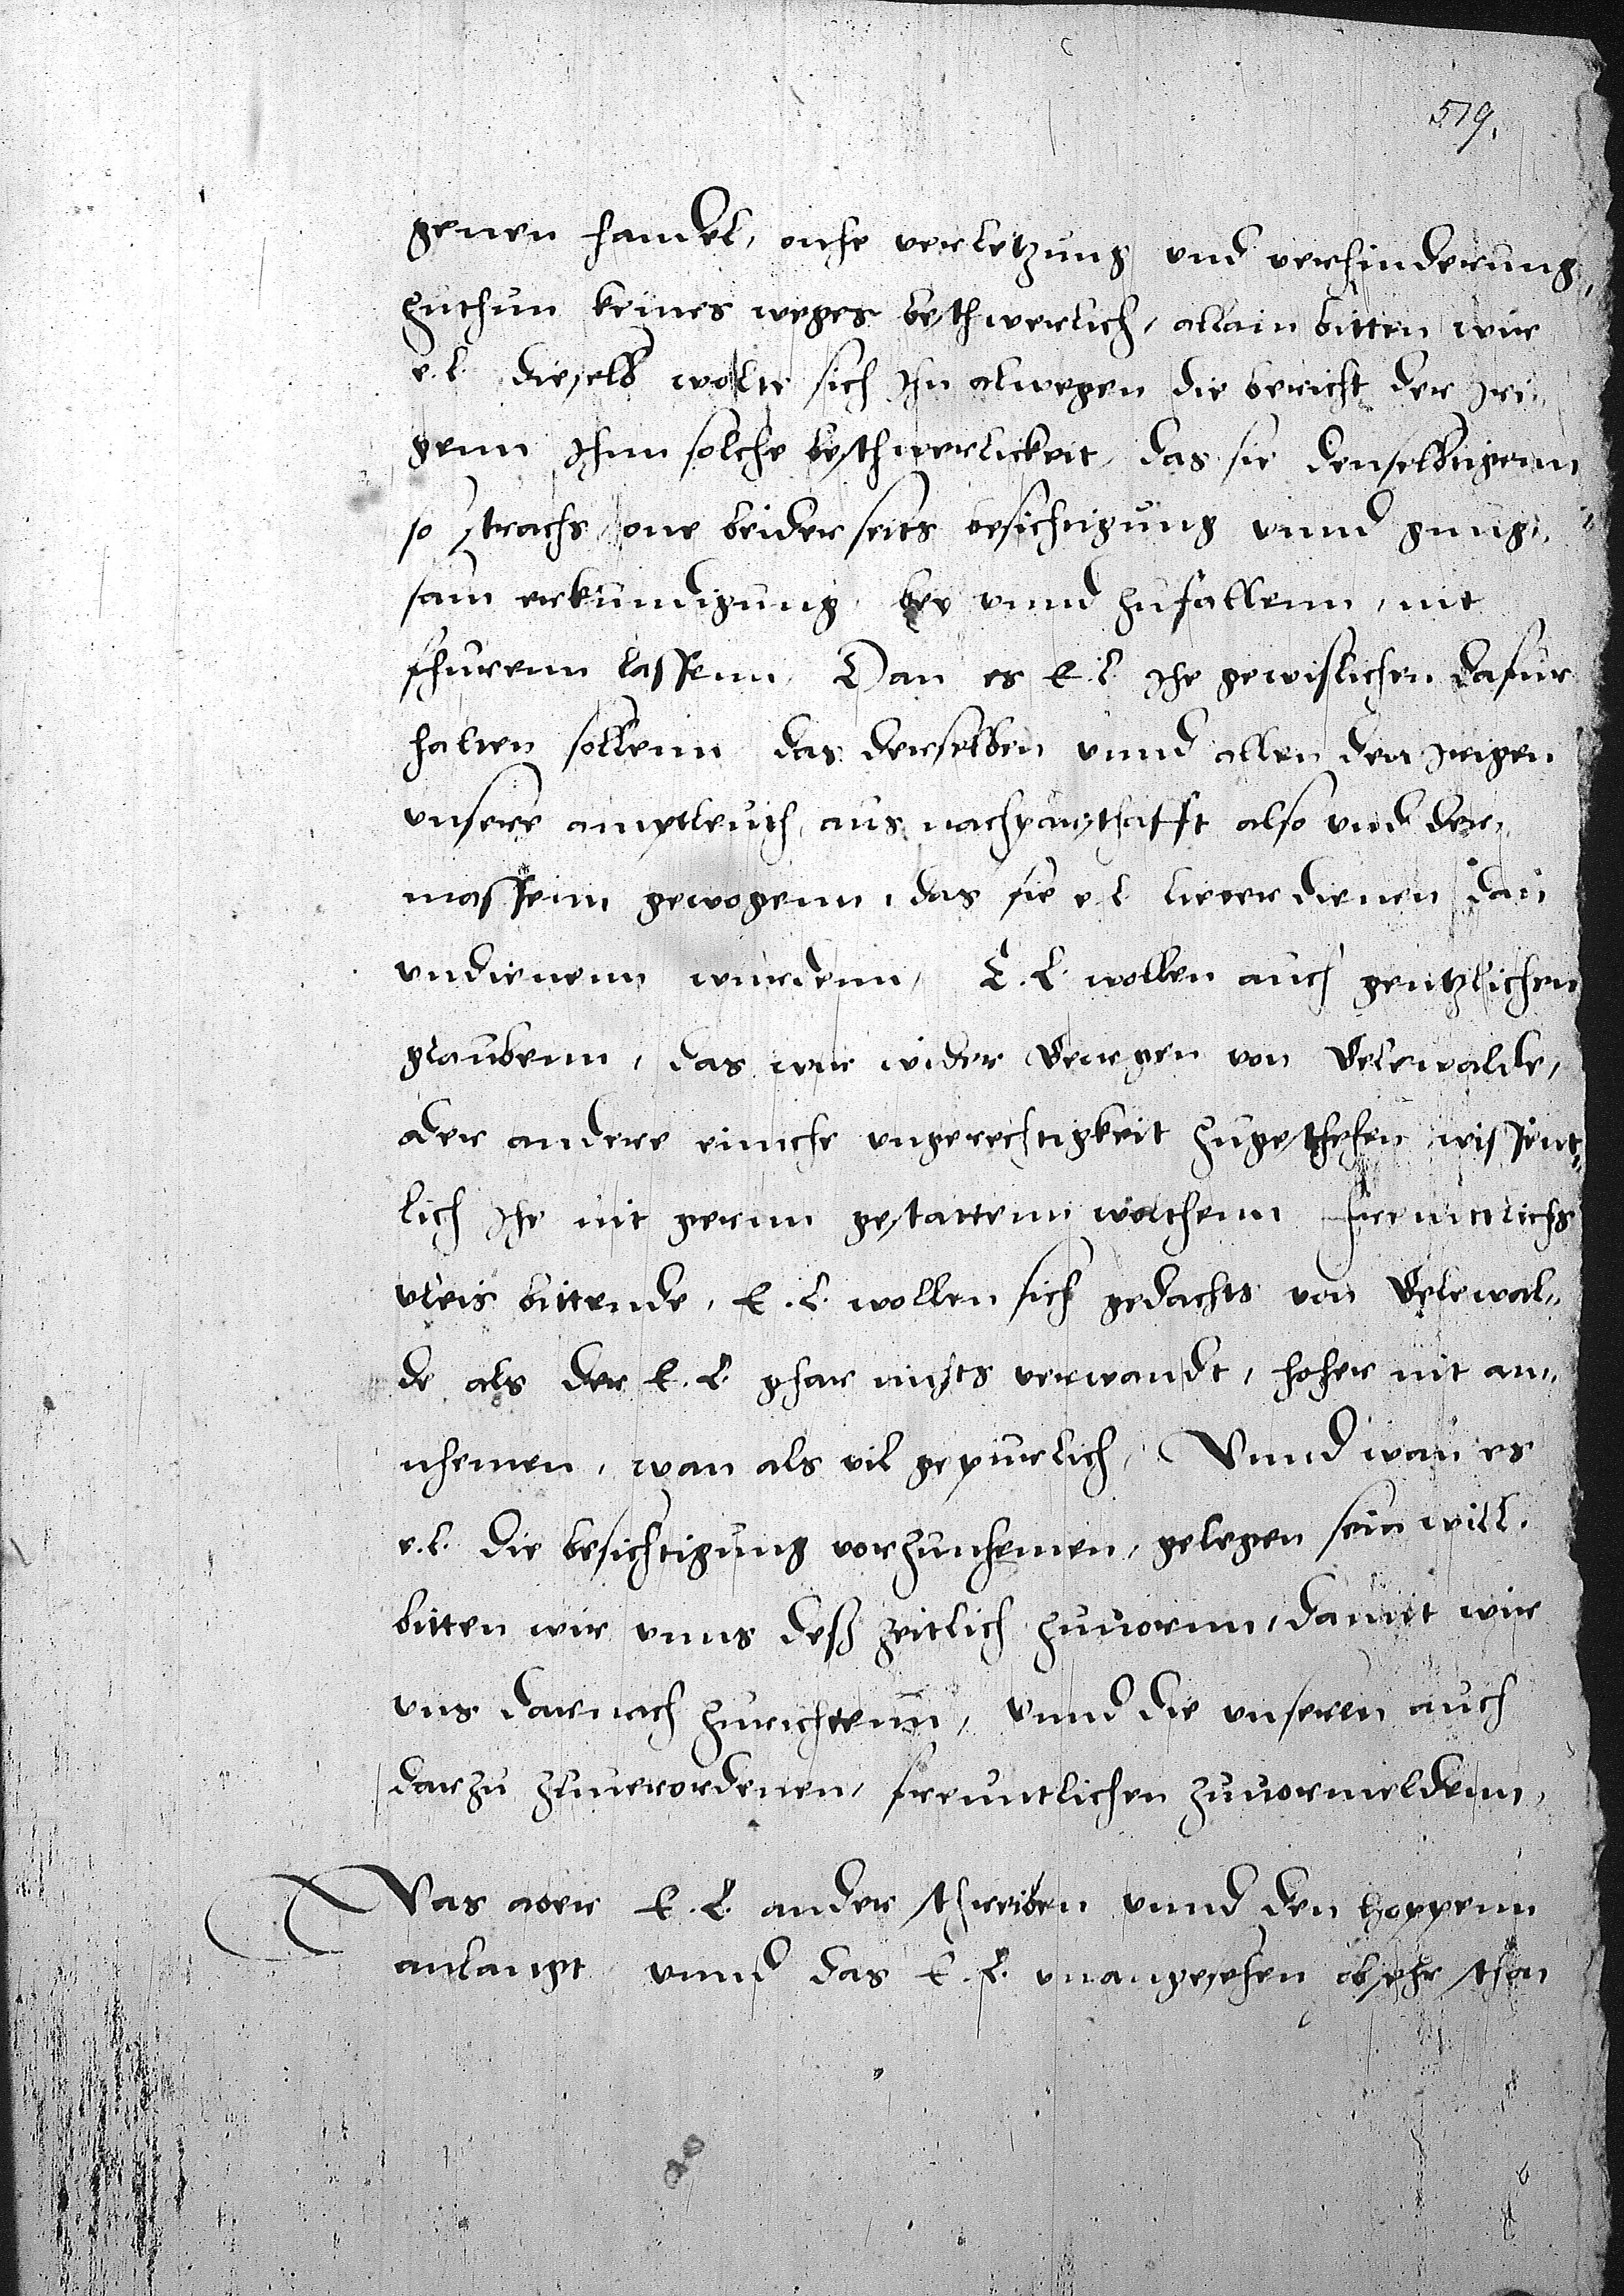 519.
genen handel, onhe verletzung vnd verhinderung,
zuthun keines weges beschwerlich, allain bitten wir
e. l. dieselb wolle sich Ihn alwegen die bericht der Iri„
genn Ihnn solche beschwerlickeit, das sie denselbigenn
so strachs, one beiderseits besichtigung vnnd gnug„
sam erkundigung, bey vnnd zufallenn, nit
fhurenn lassenn, Dan es E. l. Ihe gewislichen dafur
halten sollenn das derselben vnnd allen den Irigen
vnsere amptleuth, aus nachparschafft also vnd der„
massenn gewogenn, das sie e. l. lieber dienen dan
vndienenn wurdenn, E. L. wollen auch gentzlichen
glaubenn, das wir wider Jurgen von
ader andere einiche vngerechtigkeit zugeschehen wissent„
lich Ihe nit gernn gestattenn wolthenn freuntlichs
vleis bittende, E. L. wollen sich gedachts von
de als der E. L. ghar nichts verwandt, hoher nit an„
nhemen, wan als vil gepurlich, Vnnd wan es
e. l. die besichtigung vorzunhemen, gelegen sein will.
bitten wir vnns deß zeitlich zuuornn, damit wir
vns darnach zurichtenn, vnnd die vnseren auch
darzu zuuerordenen, freuntlichen zuuormeldenn,
Was aber E. L. ander schreiben vnnd den Hoppenn
anlangt vnnd das E. L. vnangesehen ob ehr schon